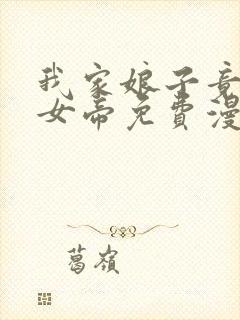 我家娘子竟
女帝免费漫
葛岭